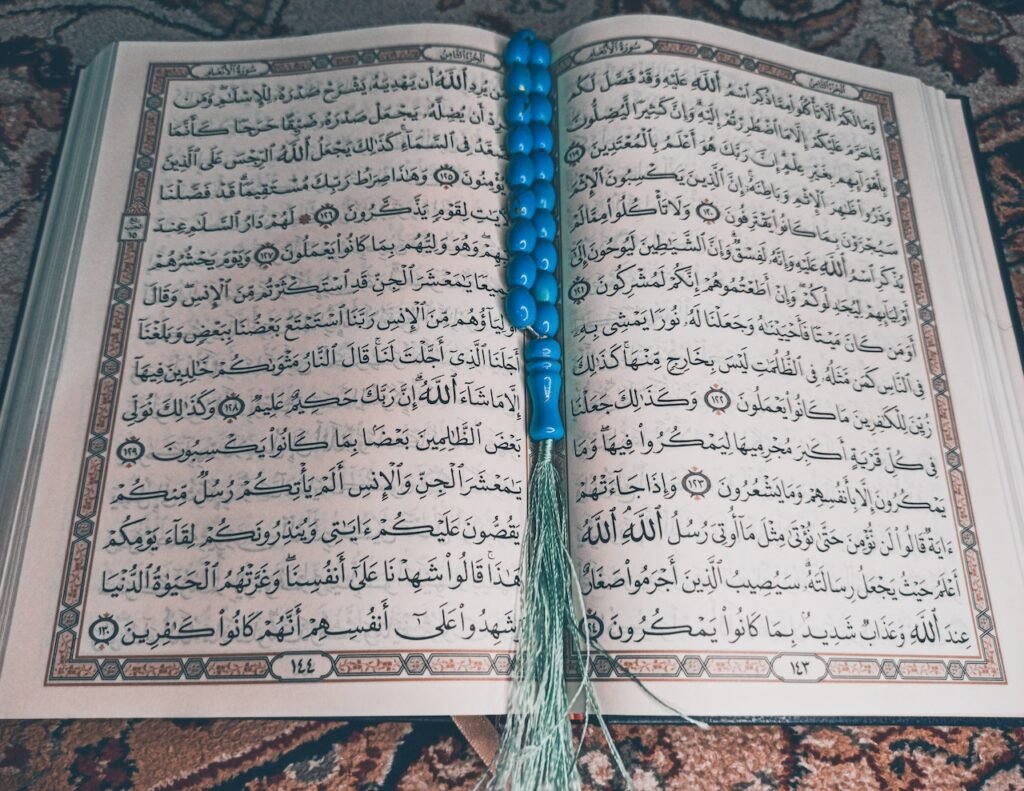 الجزء الثامن
سورة الأنعام
وَمَا لَكُمْ أَلَّا تَأْكُلُوا۟ مِمَّا ذُكِرَ ٱسْمُ ٱللَّهِ عَلَيْهِ وَقَدْ فَصَّلَ لَكُم
مَّا حَرَّمَ عَلَيْكُمْ إِلَّا مَا ٱضْطُرِرْتُمْ إِلَيْهِ وَإِنَّ كَثِيرًا لَّيُضِلُّونَ
بِأَهْوَآئِهِم بِغَيْرِ عِلْمٍ إِنَّ رَبَّكَ هُوَ أَعْلَمُ بِٱلْمُعْتَدِينَ ١١٩
وَذَرُوا۟ ظَٰهِرَ ٱلْإِثْمِ وَبَاطِنَهُۥٓ إِنَّ ٱلَّذِينَ يَكْسِبُونَ ٱلْإِثْمَ
سَيُجْزَوْنَ بِمَا كَانُوا۟ يَقْتَرِفُونَ ١٢٠ وَلَا تَأْكُلُوا۟ مِمَّا لَمْ
يُذْكَرِ ٱسْمُ ٱللَّهِ عَلَيْهِ وَإِنَّهُۥ لَفِسْقٌ وَإِنَّ ٱلشَّيَٰطِينَ لَيُوحُونَ إِلَىٰٓ
أَوْلِيَآئِهِمْ لِيُجَٰدِلُوكُمْ وَإِنْ أَطَعْتُمُوهُمْ إِنَّكُمْ لَمُشْرِكُونَ ١٢١
أَوَمَن كَانَ مَيْتًا فَأَحْيَيْنَٰهُ وَجَعَلْنَا لَهُۥ نُورًا يَمْشِى بِهِۦ
فِى ٱلنَّاسِ كَمَن مَّثَلُهُۥ فِى ٱلظُّلُمَٰتِ لَيْسَ بِخَارِجٍ مِّنْهَا كَذَٰلِكَ
زُيِّنَ لِلْكَٰفِرِينَ مَا كَانُوا۟ يَعْمَلُونَ ١٢٢ وَكَذَٰلِكَ جَعَلْنَا
فِى كُلِّ قَرْيَةٍ أَكَٰبِرَ مُجْرِمِيهَا لِيَمْكُرُوا۟ فِيهَا وَمَا
يَمْكُرُونَ إِلَّا بِأَنفُسِهِمْ وَمَا يَشْعُرُونَ ١٢٣ وَإِذَا جَآءَتْهُمْ
ءَايَةٌ قَالُوا۟ لَن نُّؤْمِنَ حَتَّىٰ نُؤْتَىٰ مِثْلَ مَآ أُوتِىَ رُسُلُ ٱللَّهِ ٱللَّهُ
أَعْلَمُ حَيْثُ يَجْعَلُ رِسَالَتَهُۥ سَيُصِيبُ ٱلَّذِينَ أَجْرَمُوا۟ صَغَارٌ
عِندَ ٱللَّهِ وَعَذَابٌ شَدِيدٌۢ بِمَا كَانُوا۟ يَمْكُرُونَ
١٤٣
الجزء الثامن
سورة الأنعام
يُرِدِ ٱللَّهُ أَن يَهْدِيَهُۥ يَشْرَحْ صَدْرَهُۥ لِلْإِسْلَٰمِ وَمَن
أَن يُضِلَّهُۥ يَجْعَلْ صَدْرَهُۥ ضَيِّقًا حَرَجًا كَأَنَّمَا
فِى ٱلسَّمَآءِ كَذَٰلِكَ يَجْعَلُ ٱللَّهُ ٱلرِّجْسَ عَلَى ٱلَّذِينَ
١٢٥ وَهَٰذَا صِرَٰطُ رَبِّكَ مُسْتَقِيمًا قَدْ فَصَّلْنَا
لِقَوْمٍ يَذَّكَّرُونَ ١٢٦ لَهُمْ دَارُ ٱلسَّلَٰمِ عِندَ
وَهُوَ وَلِيُّهُم بِمَا كَانُوا۟ يَعْمَلُونَ ١٢٧ وَيَوْمَ يَحْشُرُهُمْ
يَٰمَعْشَرَ ٱلْجِنِّ قَدِ ٱسْتَكْثَرْتُم مِّنَ ٱلْإِنسِ وَقَالَ
أَوْلِيَآؤُهُم مِّنَ ٱلْإِنسِ رَبَّنَا ٱسْتَمْتَعَ بَعْضُنَا بِبَعْضٍ وَبَلَغْنَآ
أَجَلَنَا ٱلَّذِىٓ أَجَّلْتَ لَنَا قَالَ ٱلنَّارُ مَثْوَىٰكُمْ خَٰلِدِينَ فِيهَآ
إِلَّا مَا شَآءَ ٱللَّهُ إِنَّ رَبَّكَ حَكِيمٌ عَلِيمٌ ١٢٨ وَكَذَٰلِكَ نُوَلِّى
بَعْضَ ٱلظَّٰلِمِينَ بَعْضًۢا بِمَا كَانُوا۟ يَكْسِبُونَ ١٢٩
يَٰمَعْشَرَ ٱلْجِنِّ وَٱلْإِنسِ أَلَمْ يَأْتِكُمْ رُسُلٌ مِّنكُمْ
يَقُصُّونَ عَلَيْكُمْ ءَايَٰتِى وَيُنذِرُونَكُمْ لِقَآءَ يَوْمِكُمْ
هَٰذَا قَالُوا۟ شَهِدْنَا عَلَىٰٓ أَنفُسِنَا وَغَرَّتْهُمُ ٱلْحَيَوٰةُ ٱلدُّنْيَا
وَشَهِدُوا۟ عَلَىٰٓ أَنفُسِهِمْ أَنَّهُمْ كَانُوا۟ كَٰفِرِينَ ١٣٠
١٤٤